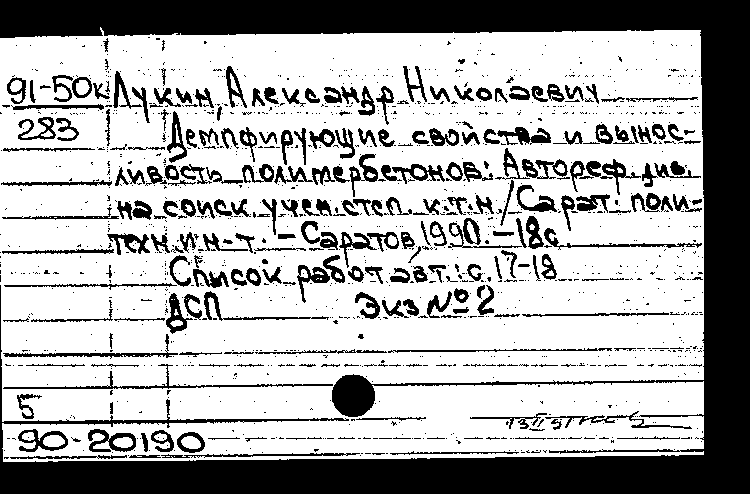 91-50к Лукин, Александр Николаевич
283 Демпфирующие свойства и вынос-
ливость полимербетонов: Автореф. дис.
на соиск. учен. степ. к.т.н. / Сарат. поли-
техн. ин-т. - Саратов, 1990. - 18с.
Список работ авт.: с. 17-18
ДСП Экз № 2
5
90-20190